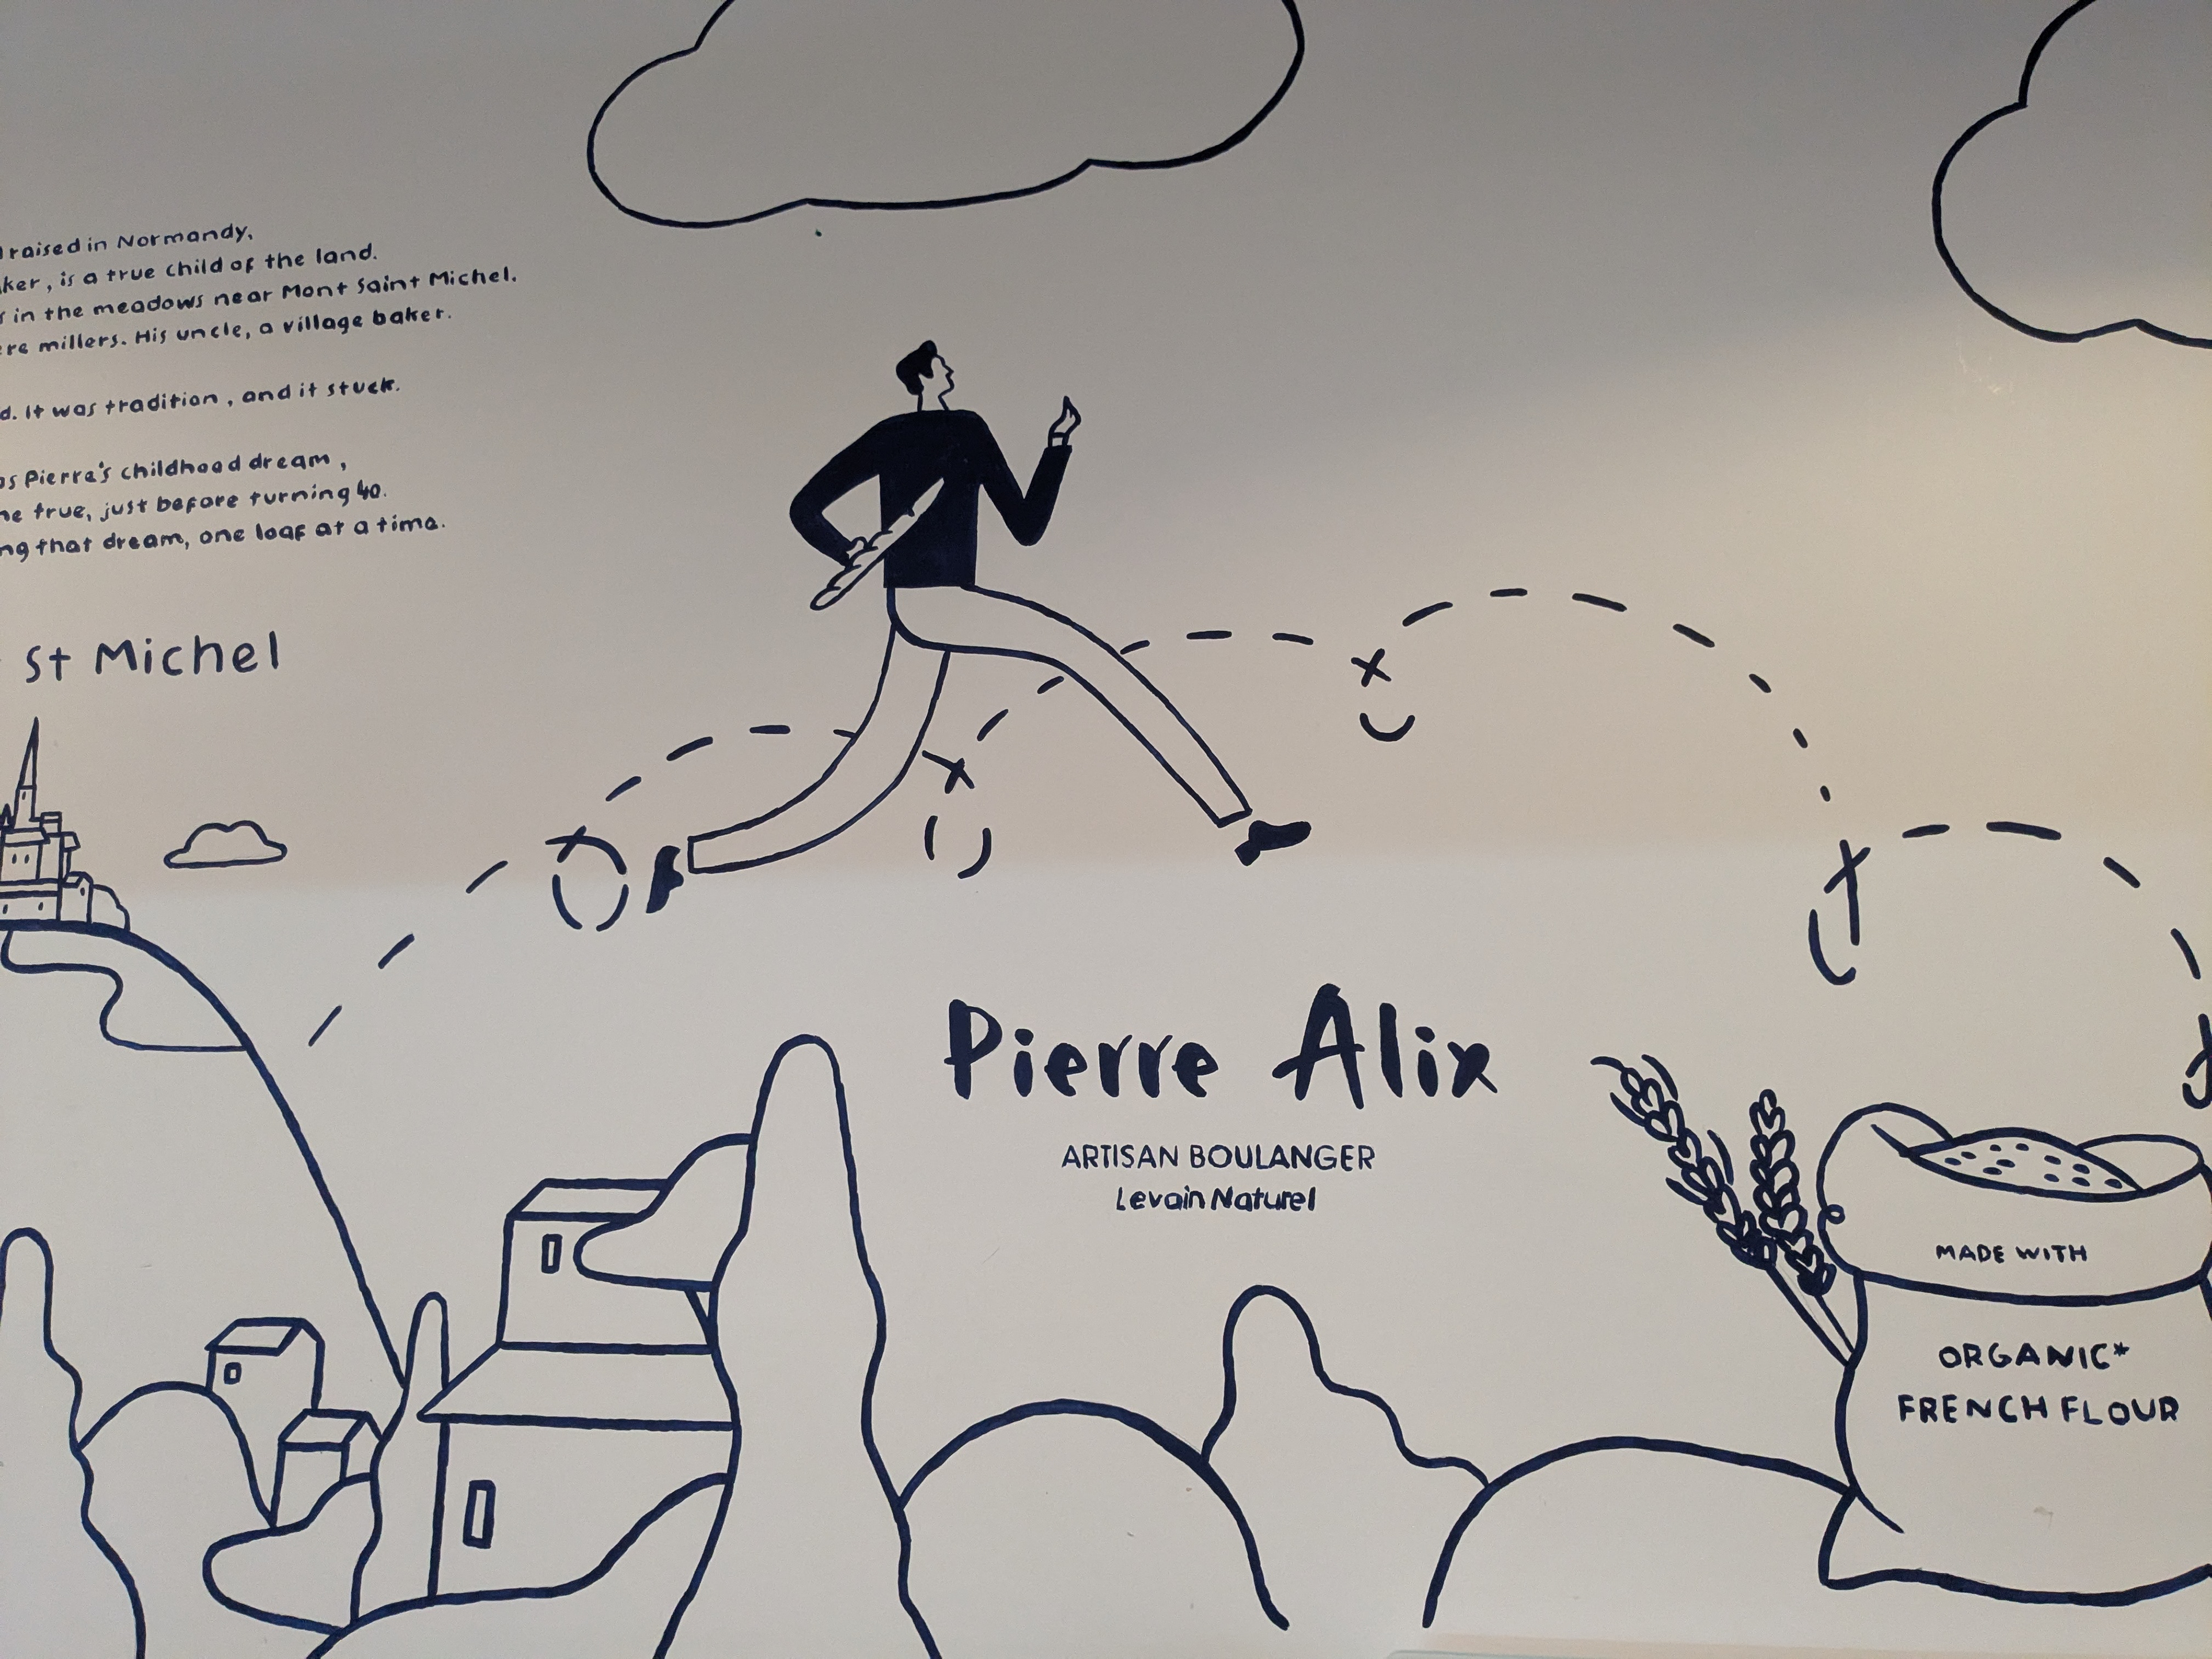 raised in Normandy,
, is a true child of the land.
in the meadows near Mont Saint Michel.
millers. His uncle, a village baker.
It was tradition, and it stuck.
Pierre's childhood dream,
true, just before turning 40.
that dream, one loaf at a time.
St Michel
Pierre Alix
ARTISAN BOULANGER
Levain Naturel
MADE WITH
ORGANIC*
FRENCH FLOUR